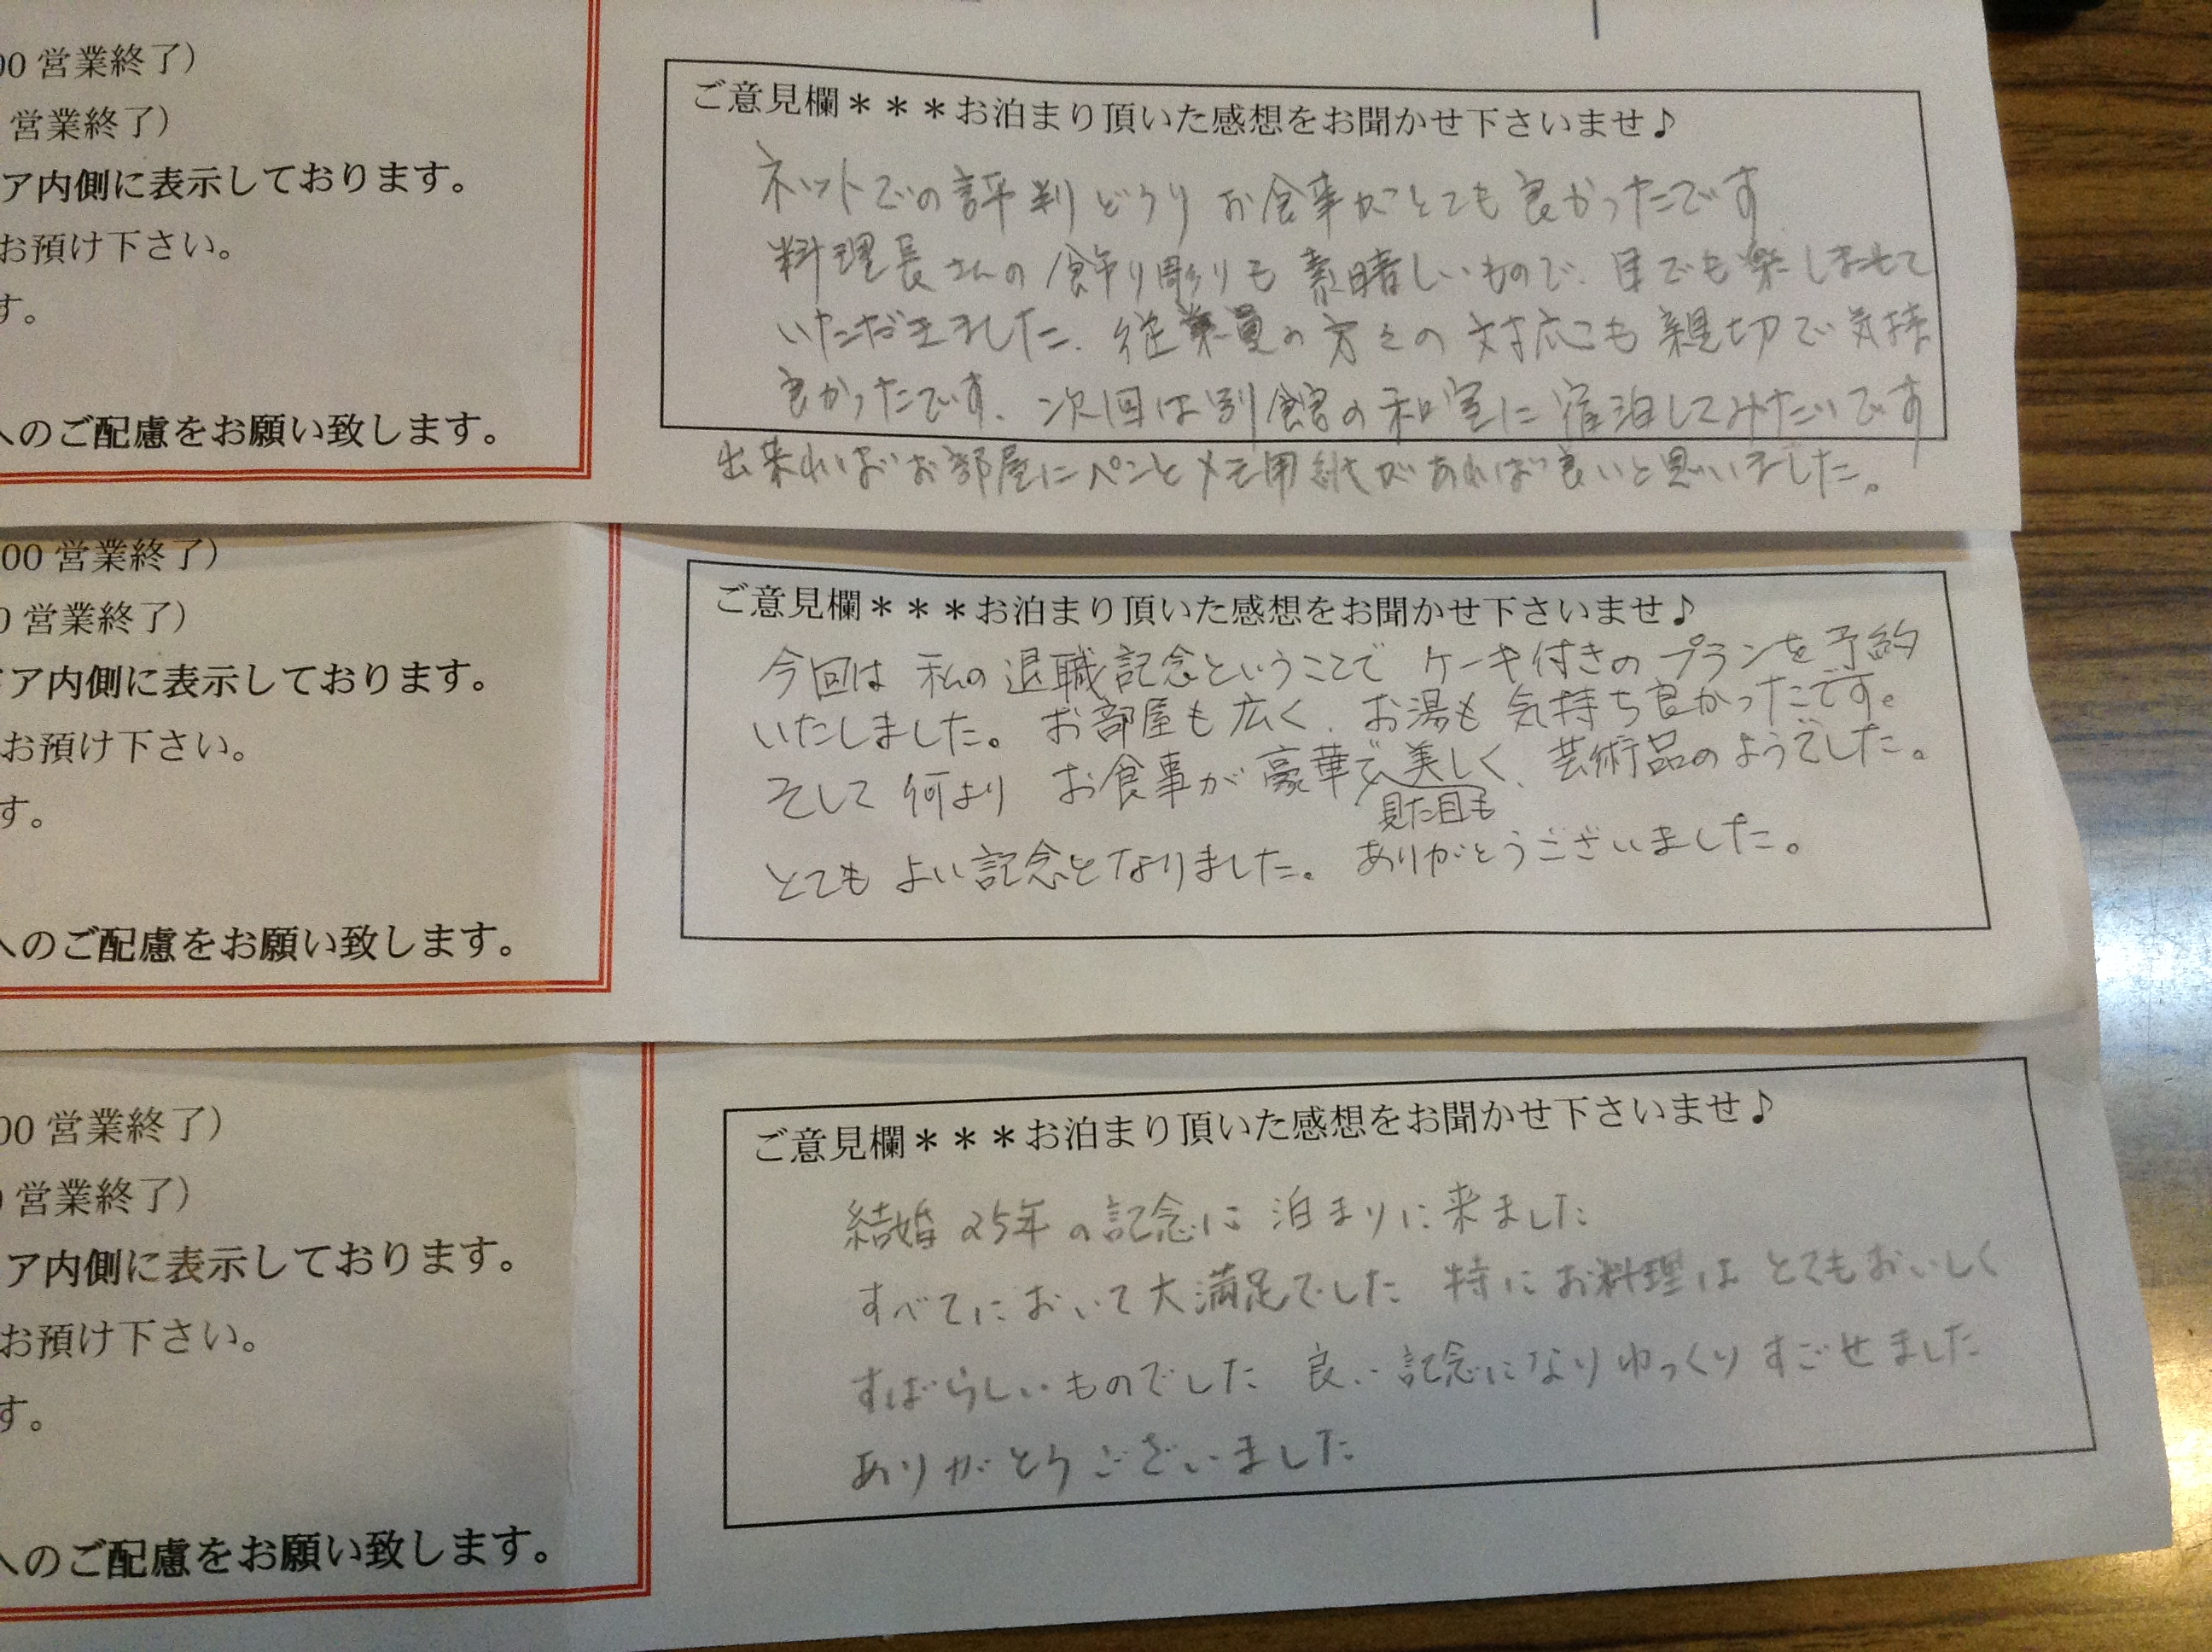 00 営業終了）
営業終了）
ア内側に表示しております。
お預け下さい。
す。
へのご配慮をお願い致します。
ご意見欄＊＊＊お泊まり頂いた感想をお聞かせ下さいませ♪
ネットでの評判どうり お食事がとても良かったです
料理長さんの飾り彫りも素晴しいもので、目でも楽しませて
いただきました。従業員の方々の対応も親切で気持
良かったです。次回は別館の和室に宿泊してみたいです
出来ればお部屋にペンとメモ用紙があれば良いと思いました。
00 営業終了）
0 営業終了）
ドア内側に表示しております。
お預け下さい。
す。
へのご配慮をお願い致します。
ご意見欄＊＊＊お泊まり頂いた感想をお聞かせ下さいませ♪
今回は 私の退職記念ということで ケーキ付きのプランを予約
いたしました。お部屋も広く、お湯も気持ち良かったです。
そして何より お食事が豪華で美しく、芸術品のようでした。
見た目も
とてもよい記念となりました。ありがとうございました。
00 営業終了）
営業終了）
ア内側に表示しております。
お預け下さい。
す。
へのご配慮をお願い致します。
ご意見欄＊＊＊お泊まり頂いた感想をお聞かせ下さいませ♪
結婚25年の記念に 泊まりに来ました
すべてにおいて大満足でした 特にお料理は とてもおいしく
すばらしいものでした 良い記念になりゆっくりすごせました
ありがとうございました